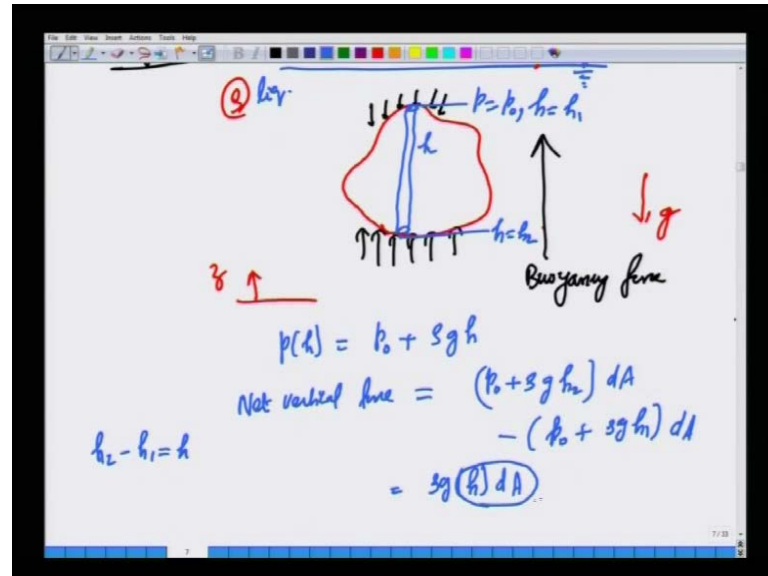 File Edit View Insert Actions Tools Help
ρ liq.
p = p₀, h = h₁
h
h = h₂
g
z
Buoyancy force
p(h) = p₀ + ρgh
Net vertical force = (p₀ + ρgh₂) dA
- (p₀ + ρgh₁) dA
h₂ - h₁ = h
= ρg(h) dA
7/33
7